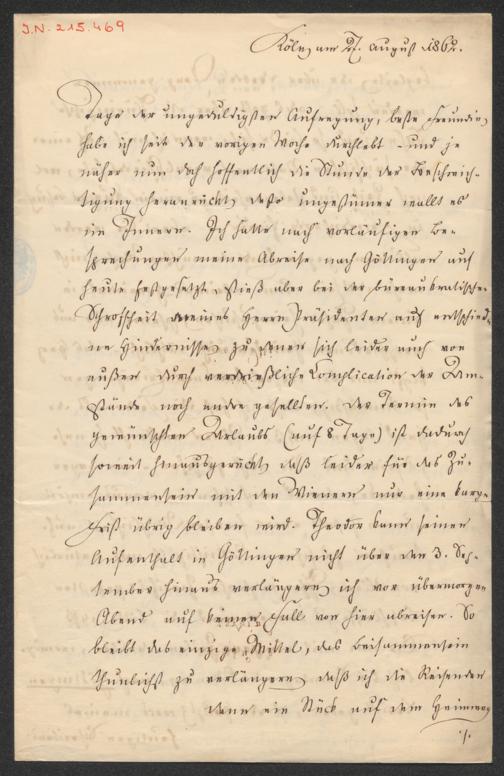 J.N. 215.469
Köln, am 27. August 1862.
Tage der ungeduldigsten Aufregung, beste Freundin,
habe ich seit der vorigen Woche durchlebt – und je
näher nun doch hoffentlich die Stunde der Beschwich-
tigung heranrückt, desto ungestümer wallt es
im Innern. Ich hatte nach vorläufigen Be-
sprechungen meine Abreise nach Göttingen auf
heute festgesetzt, stieß aber bei der büreaukratischen
Schroffheit meines Herrn Präsidenten auf entschiede-
ne Hindernisse, zu denen sich leider auch von
außen durch verdrießliche Complication der Um-
stände noch andre gesellten. Der Termin des
gewünschten Urlaubs (auf 8 Tage) ist dadurch
soweit hinausgerückt, daß leider für das Zu-
sammensein mit den Wienern nur eine karge
Frist übrig bleiben wird. Theodor kann seinen
Aufenthalt in Göttingen nicht über den 3. Sep-
tember hinaus verlängern, ich vor übermorgen
Abend auf keinen Fall von hier abreisen. So
bleibt das einzige Mittel, das Beisammensein
thunlichst zu verlängern, daß ich die Reisenden
dann ein Stück auf dem Heimweg
./.